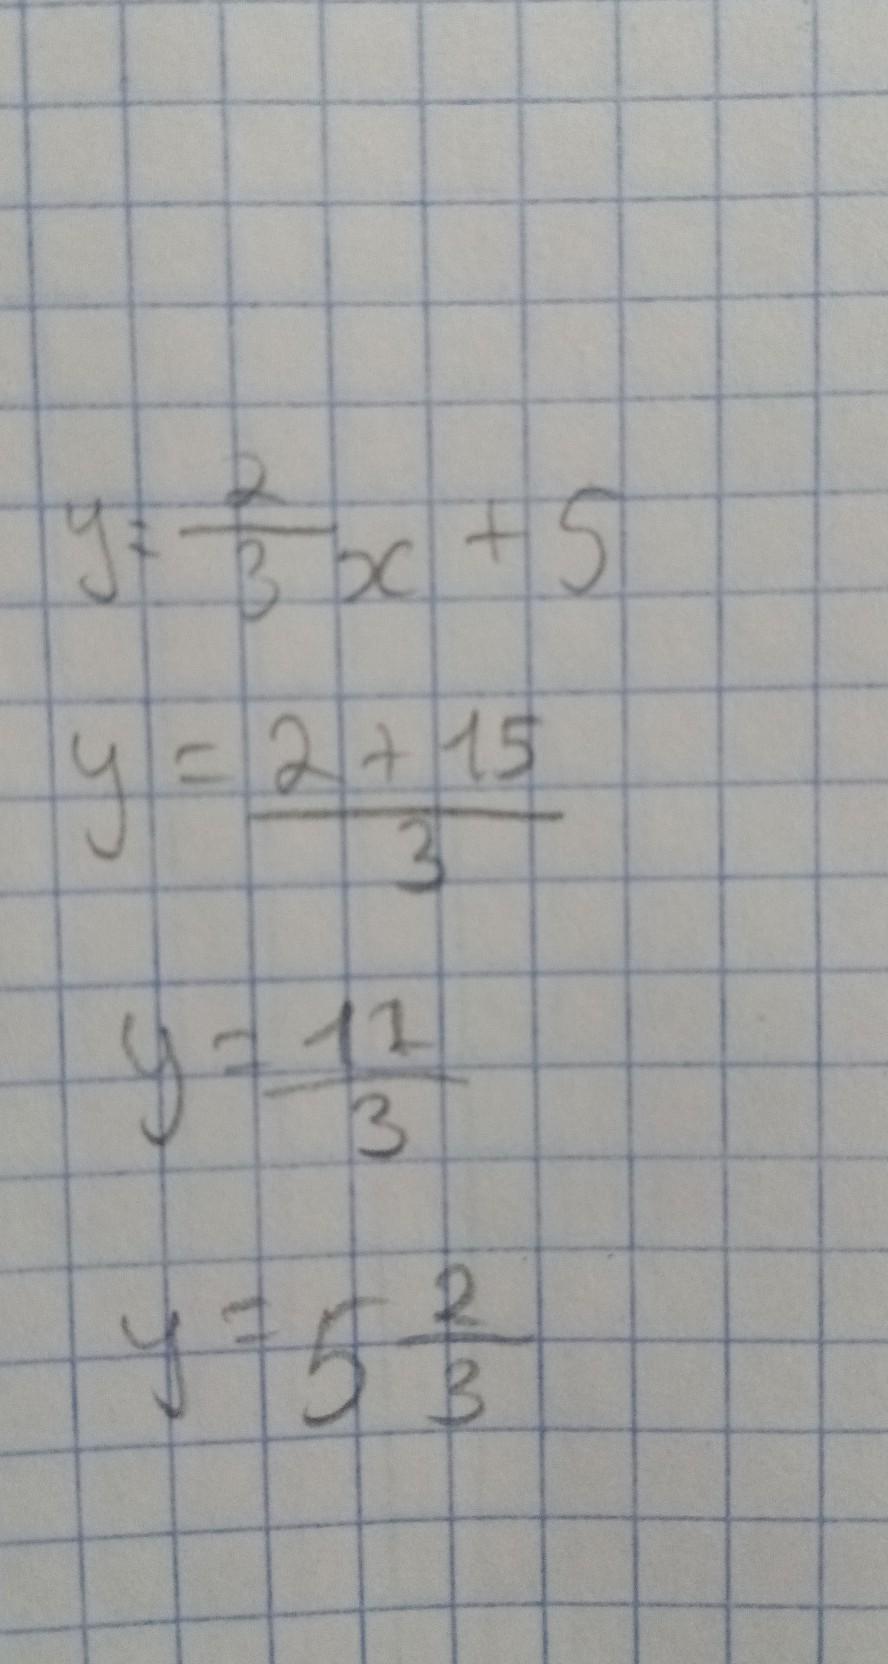 y = 2/3 x + 5
y = (2 + 15)/3
y = 17/3
y = 5 2/3